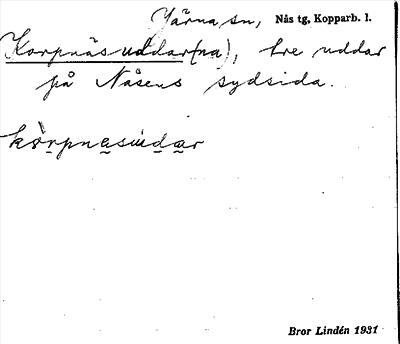 Järna sn, Nås tg, Kopparb. l.
Korpnäsuddar(na), tre uddar
på Nåsens sydsida.
kòrpnasùdar
Bror Lindén 1931